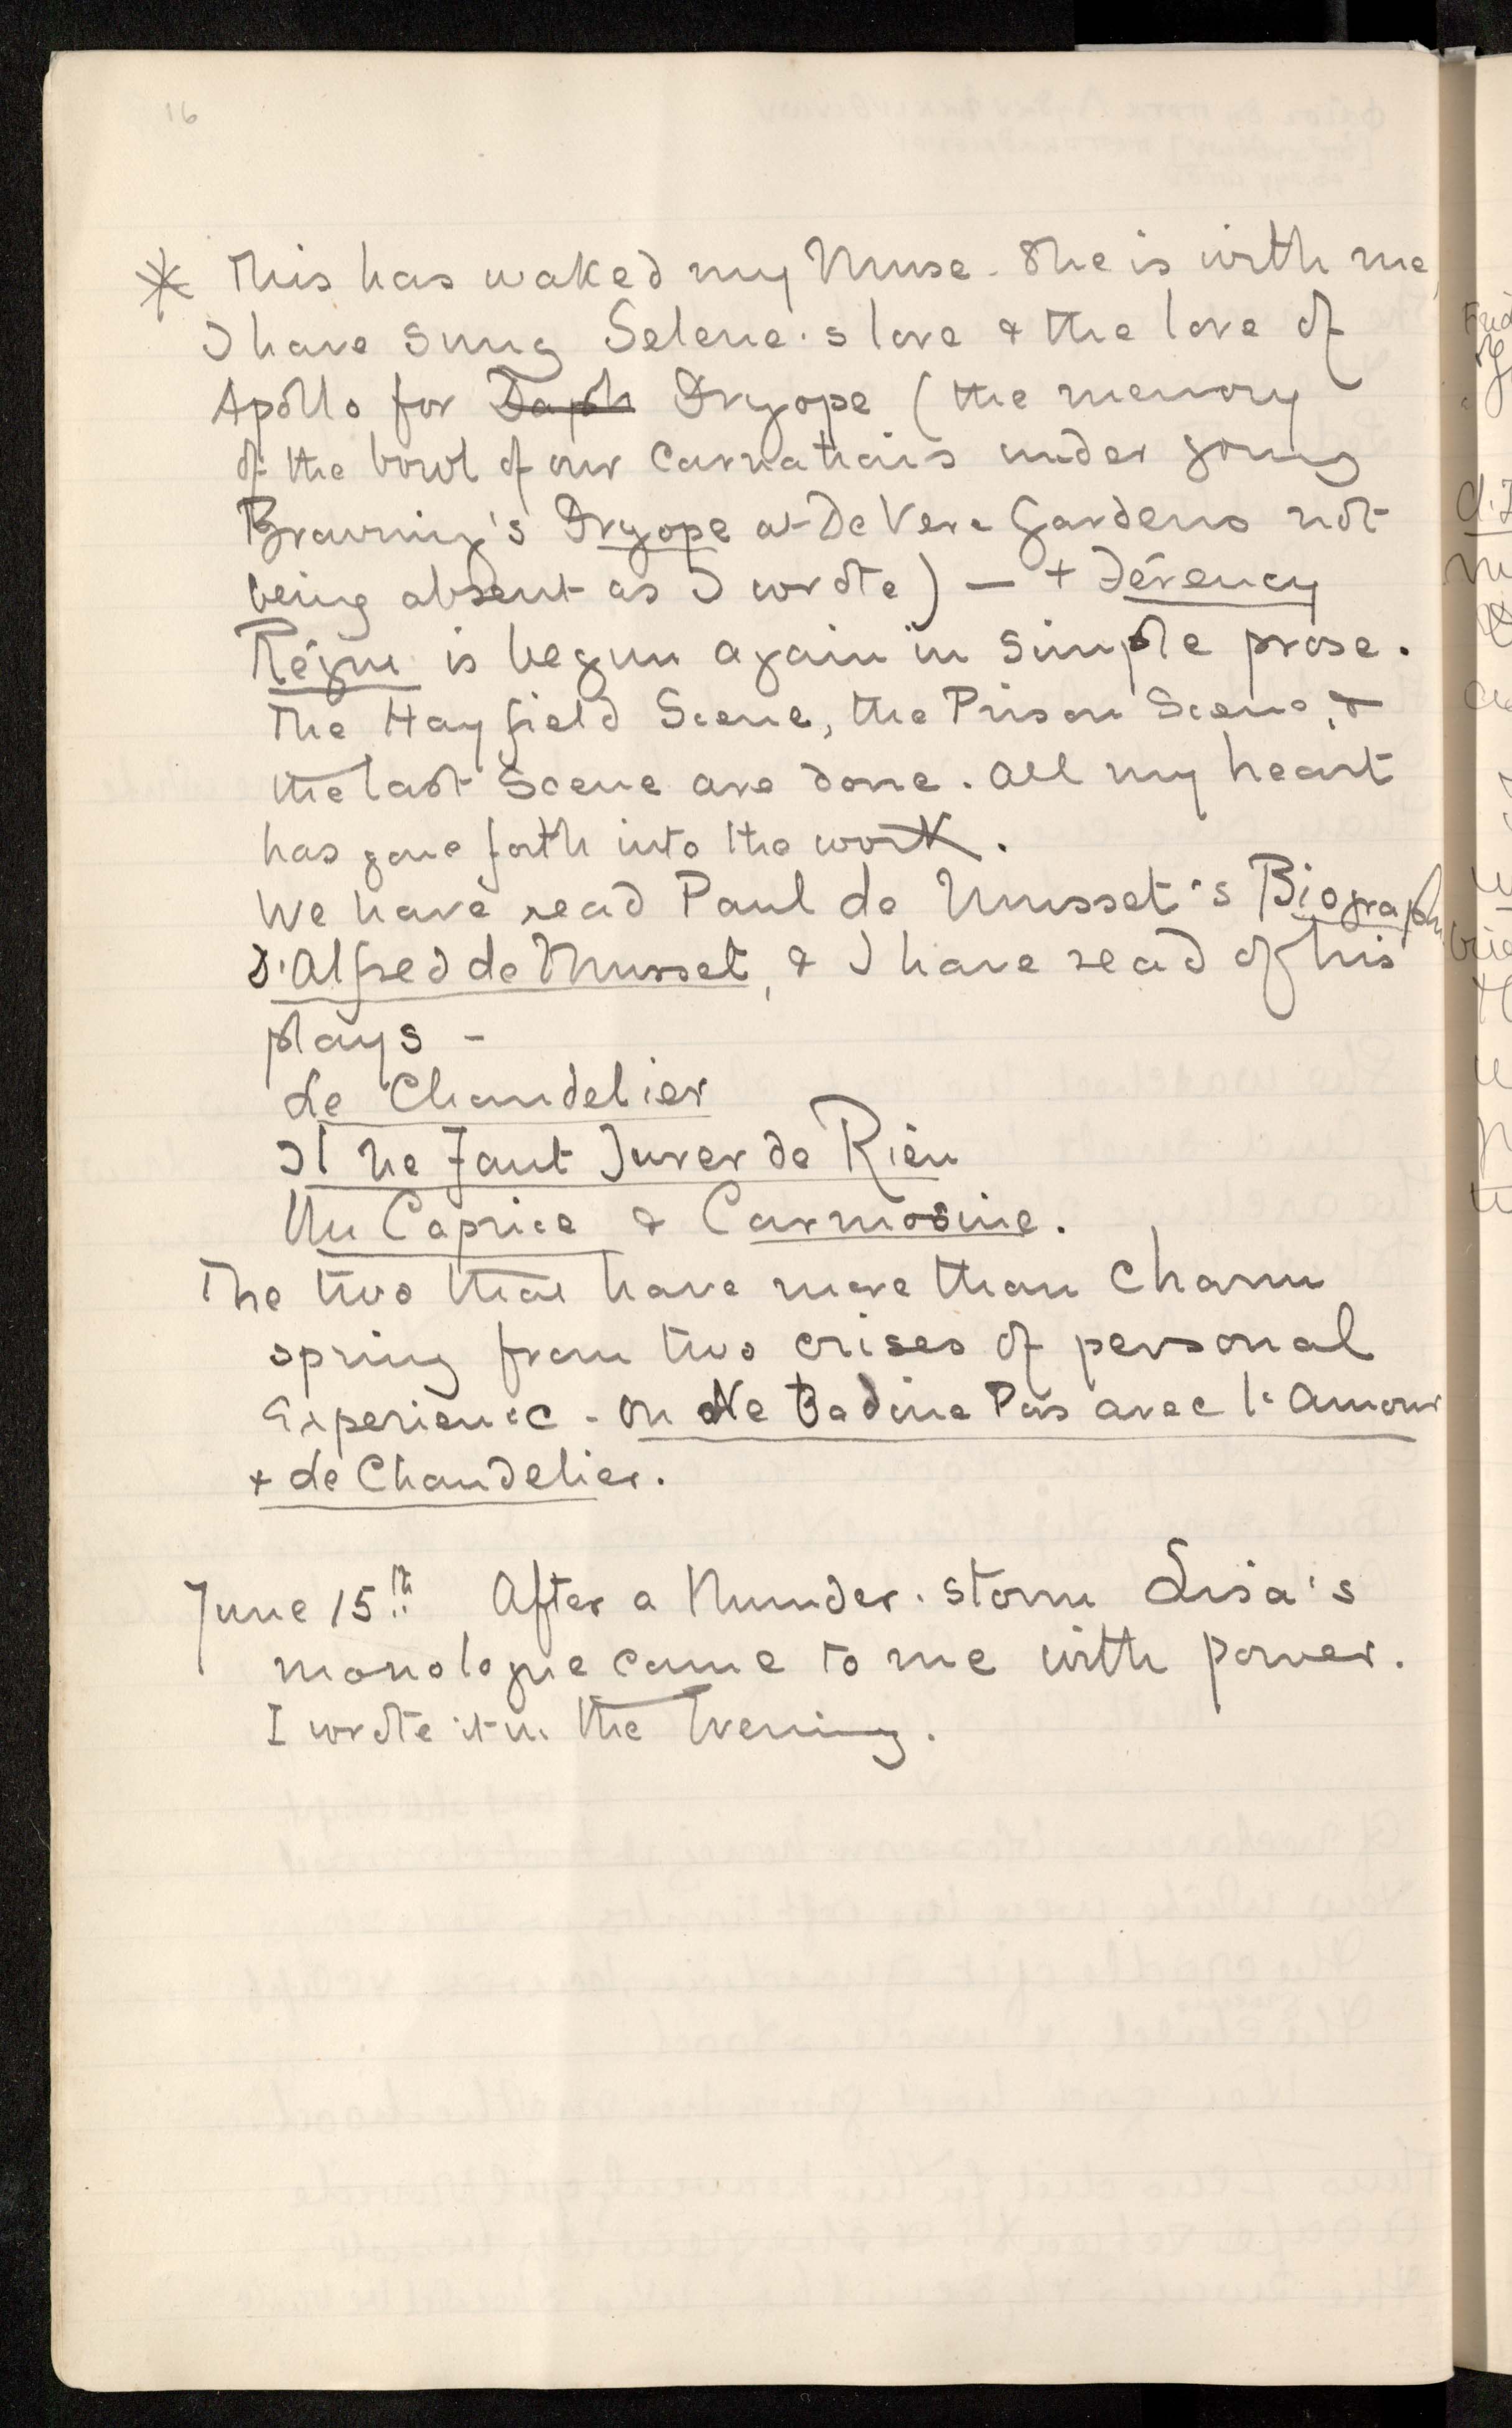 16
* This has waked my Muse. She is with me,
I have sung Selene's love & the love of
Apollo for Daph Dryope (the memory
of the bowl of our Carnations under young
Browning's Dryope at De Vere Gardens not
being absent as I wrote) — +
is begun again in simple prose.
The Hayfield Scene, the Prison Scene, &
the last Scene are done. All my heart
has gone forth into the work.
We have read Paul de Musset's Biograph
d'Alfred de Musset, & I have read of his
plays -
Le Chandelier
Il Ne Faut Jurer de Rien
Un Caprice & Carmosine.
The two that have more than charm
spring from two crises of personal
Experience - On Ne Badine Pas avec l'Amour
+ Le Chandelier.
June 15th After a thunder-storm Lisa's
monologue came to me with power.
I wrote it in the Evening.